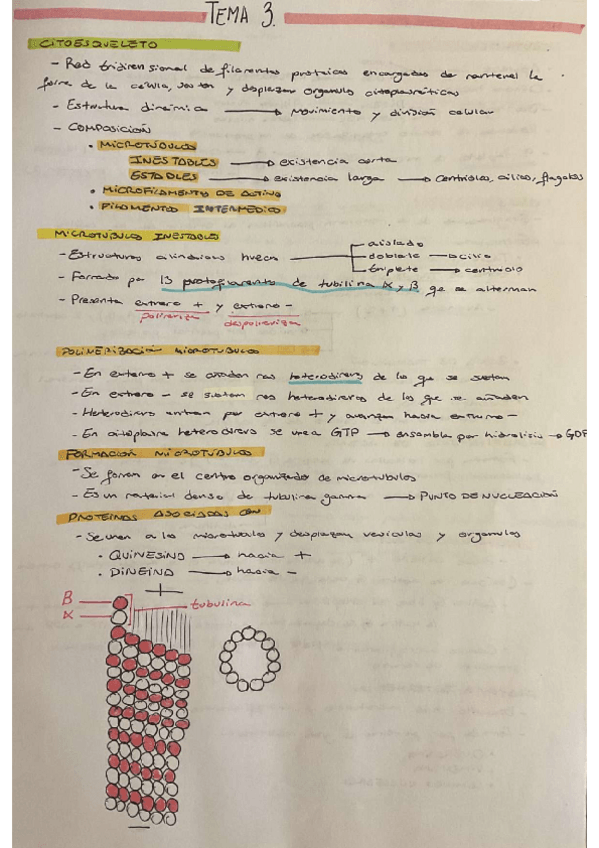 TEMA 3.
CITOESQUELETO
- Red tridimensional de filamentos proteicos encargados de mantener la
forma de la célula, sostén y desplazar organulo citoplasmáticos
- Estructura dinámica → movimiento y división celular
- COMPOSICIÓN
• MICROTÚBULOS
INESTABLES → existencia corta
ESTABLES → existencia larga → centriolos, cilios, flagelos
• MICROFILAMENTO DE ACTINA
• FILAMENTO INTERMEDIO
MICROTUBULO INESTABLE
- Estructuras cilindricas huecas
aislado
doblete → cilio
triplete → centriolo
- Formado por 13 protofilamentos de tubilina α y β que se alternan
- Presenta extremo + y extremo -
polimeriza
despolimeriza
POLIMERIZACIÓN MICROTUBULOS
- En extremo + se añaden mas heterodimeros de lo que se sueltan
- En extremo - se sueltan mas heterodimeros de los que se añaden
- Heterodimero entran por extremo + y avanzan hacia extremo -
- En citoplasma heterodimero se une a GTP → ensambla por hidrolisis → GDP
FORMACIÓN MICROTUBULO
- Se forman en el centro organizador de microtubulos
- Es un material denso de tubulina gamma → PUNTO DE NUCLEACIÓN
PROTEINAS ASOCIADAS CON
- Se unen a los microtubulo y desplazan vesiculas y organulos
• QUINESINA → hacia +
• DINEINA → hacia -
+
B
α
tubulina
-